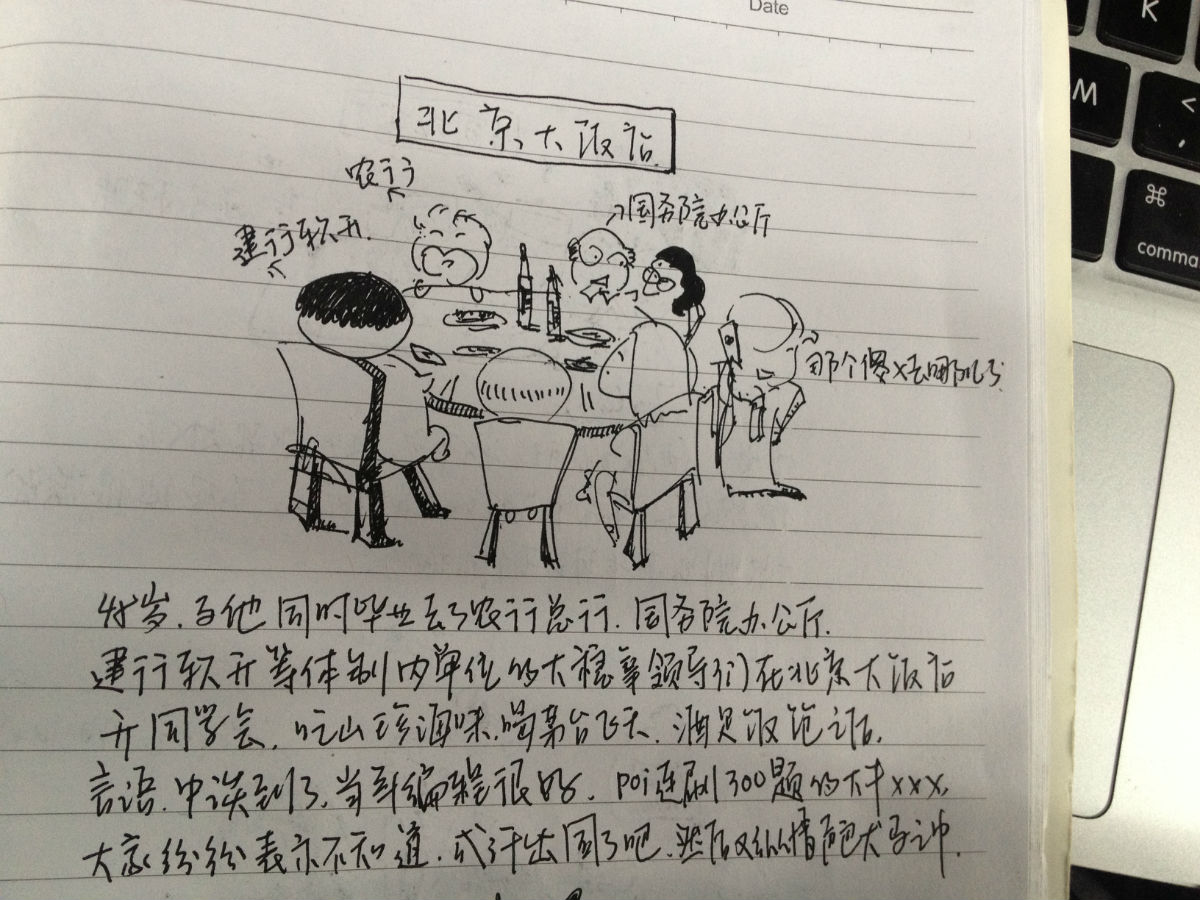 Date
北京大饭店
农行
国务院办公厅
建行软开
那个傻X去哪儿了
48岁.与他同时毕业去了农行总行.国务院办公厅.
建行软开等体制内单位的大领导们在北京大饭店
开同学会.吃山珍海味.喝茅台飞天.酒足饭饱之后.
言语.中谈到了.当年编程很好.poj连刷300题的大牛xxx.
大家纷纷表示不知道.或许出国了吧.然后又纵情声色犬马中.
K
M
<
,
⌘
comma